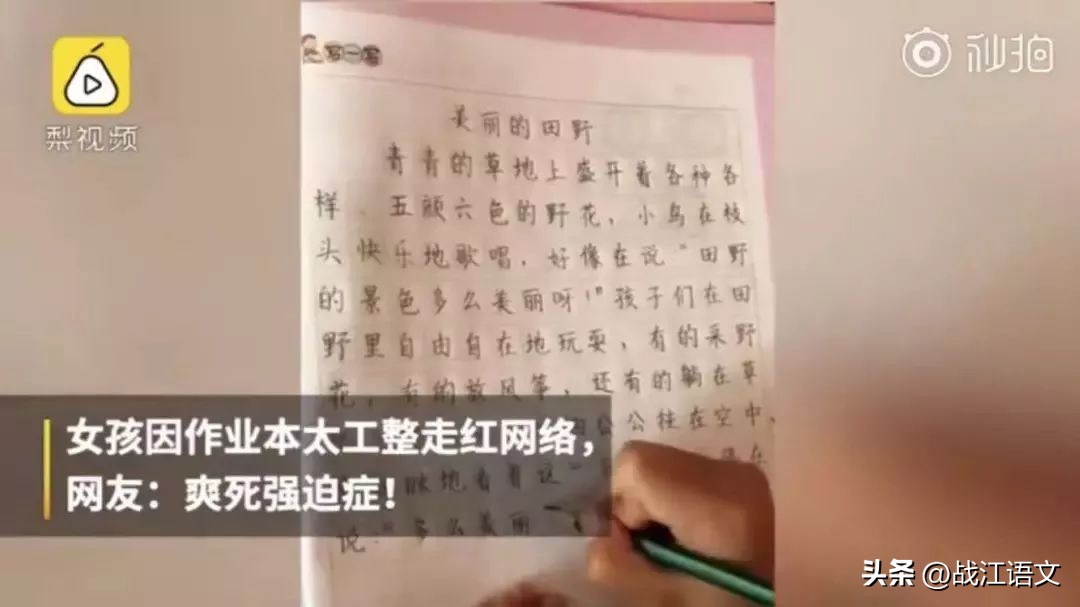 梨视频
秒拍
写一写
美丽的田野
青青的草地上盛开着各种各
样、五颜六色的野花，小鸟在枝
头快乐地歌唱，好像在说“田野
的景色多么美丽呀！”孩子们在田
野里自由自在地玩耍，有的采野
花，有的放风筝，还有的躺在草
公公挂在空中，
眯地看着这
说：“多么美丽
女孩因作业本太工整走红网络，
网友：爽死强迫症！
头条 @战江语文